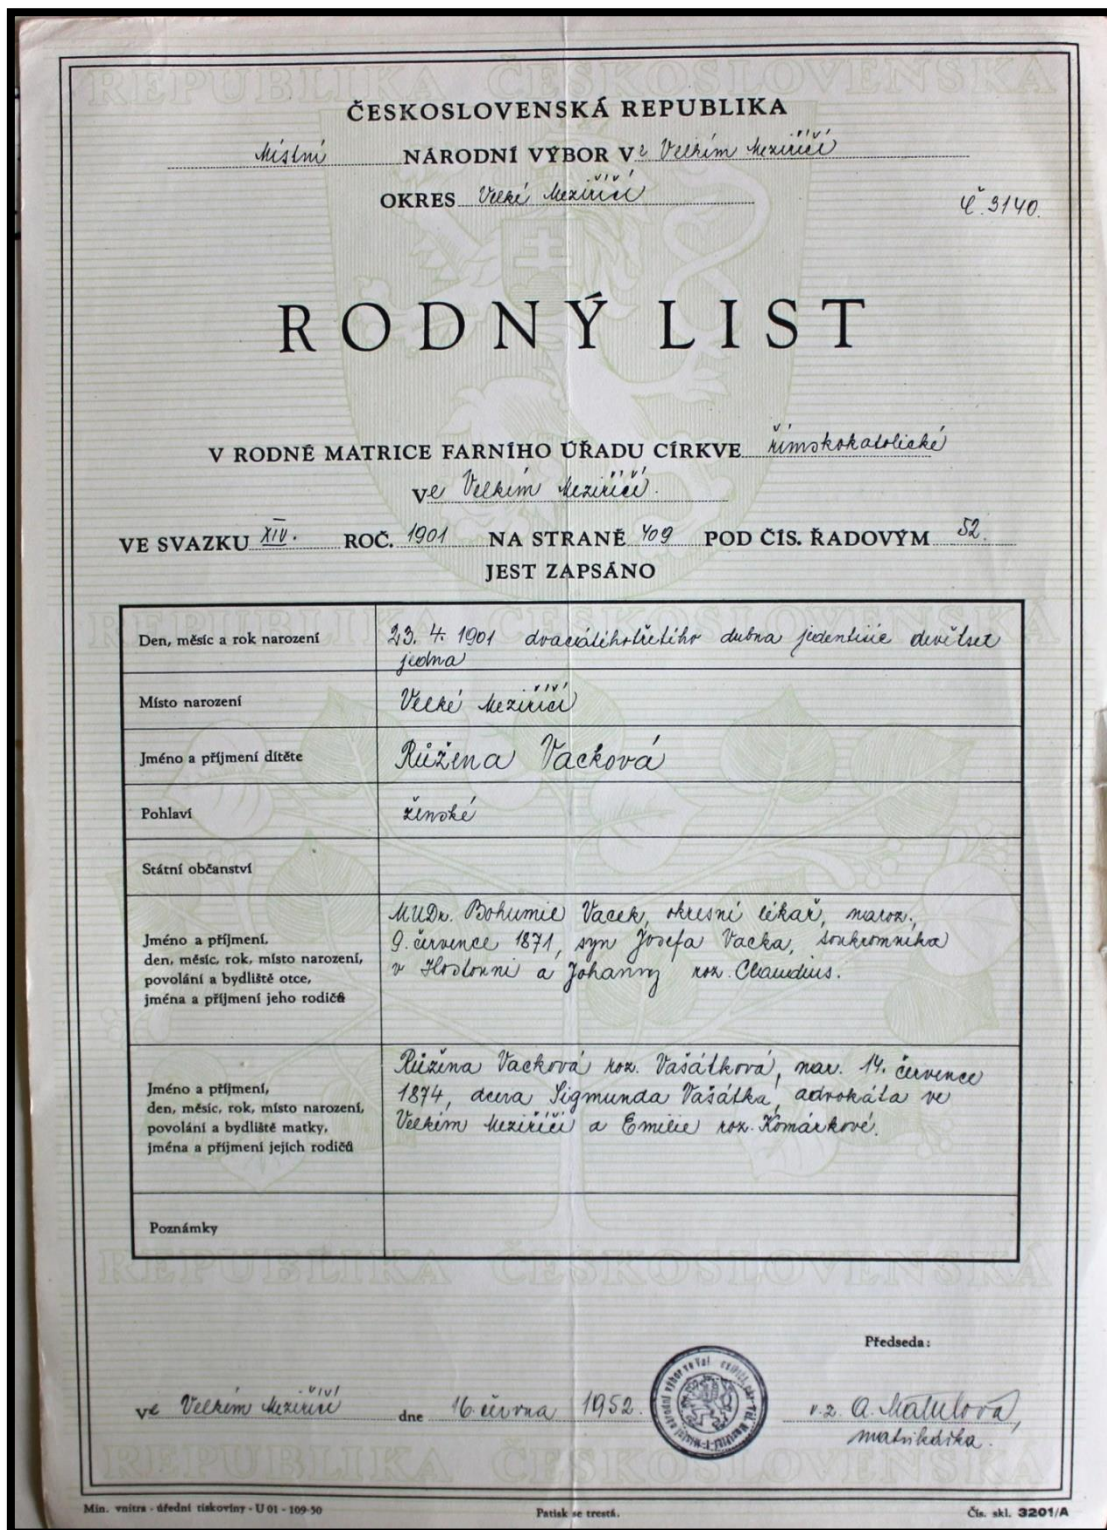 REPUBLIKA ČESKOSLOVENSKÁ
ČESKOSLOVENSKÁ REPUBLIKA
Místní NÁRODNÍ VÝBOR Ve Velkém Meziříčí
OKRES Velké Meziříčí
Č. 3140.
RODNÝ LIST
V RODNÉ MATRICE FARNÍHO ÚŘADU CÍRKVE římskokatolické
ve Velkém Meziříčí.
VE SVAZKU XIV. ROČ. 1901 NA STRANĚ 409 POD ČÍS. ŘADOVÝM 52.
JEST ZAPSÁNO
REPUBLIKA ČESKOSLOVENSKÁ
Den, měsíc a rok narození 23. 4. 1901 dvacátéhotřetího dubna jedentisíc devětset
jedna
Místo narození Velké Meziříčí
Jméno a příjmení dítěte Růžena Vacková
Pohlaví ženské
Státní občanství
Jméno a příjmení,
den, měsíc, rok, místo narození,
povolání a bydliště otce,
jména a příjmení jeho rodičů
MUDr. Bohumil Vacek, okresní lékař, naroz.
9. července 1871, syn Josefa Vacka, soukromníka
v Hostouni a Johanny roz. Claudius.
Jméno a příjmení,
den, měsíc, rok, místo narození,
povolání a bydliště matky,
jména a příjmení jejich rodičů
Růžena Vacková roz. Vašátková, nar. 14. července
1874, dcera Sigmunda Vašátka, advokáta ve
Velkém Meziříčí a Emilie roz. Komárkové.
Poznámky
REPUBLIKA ČESKOSLOVENSKÁ
Předseda:
ve Velkém Meziříčí dne 16. června 1952.
v.z. A. Matulová,
matrikářka.
REPUBLIKA ČESKOSLOVENSKÁ
Min. vnitra - úřední tiskoviny - U 01 - 109-50 Patisk se trestá. Čís. skl. 3201/A